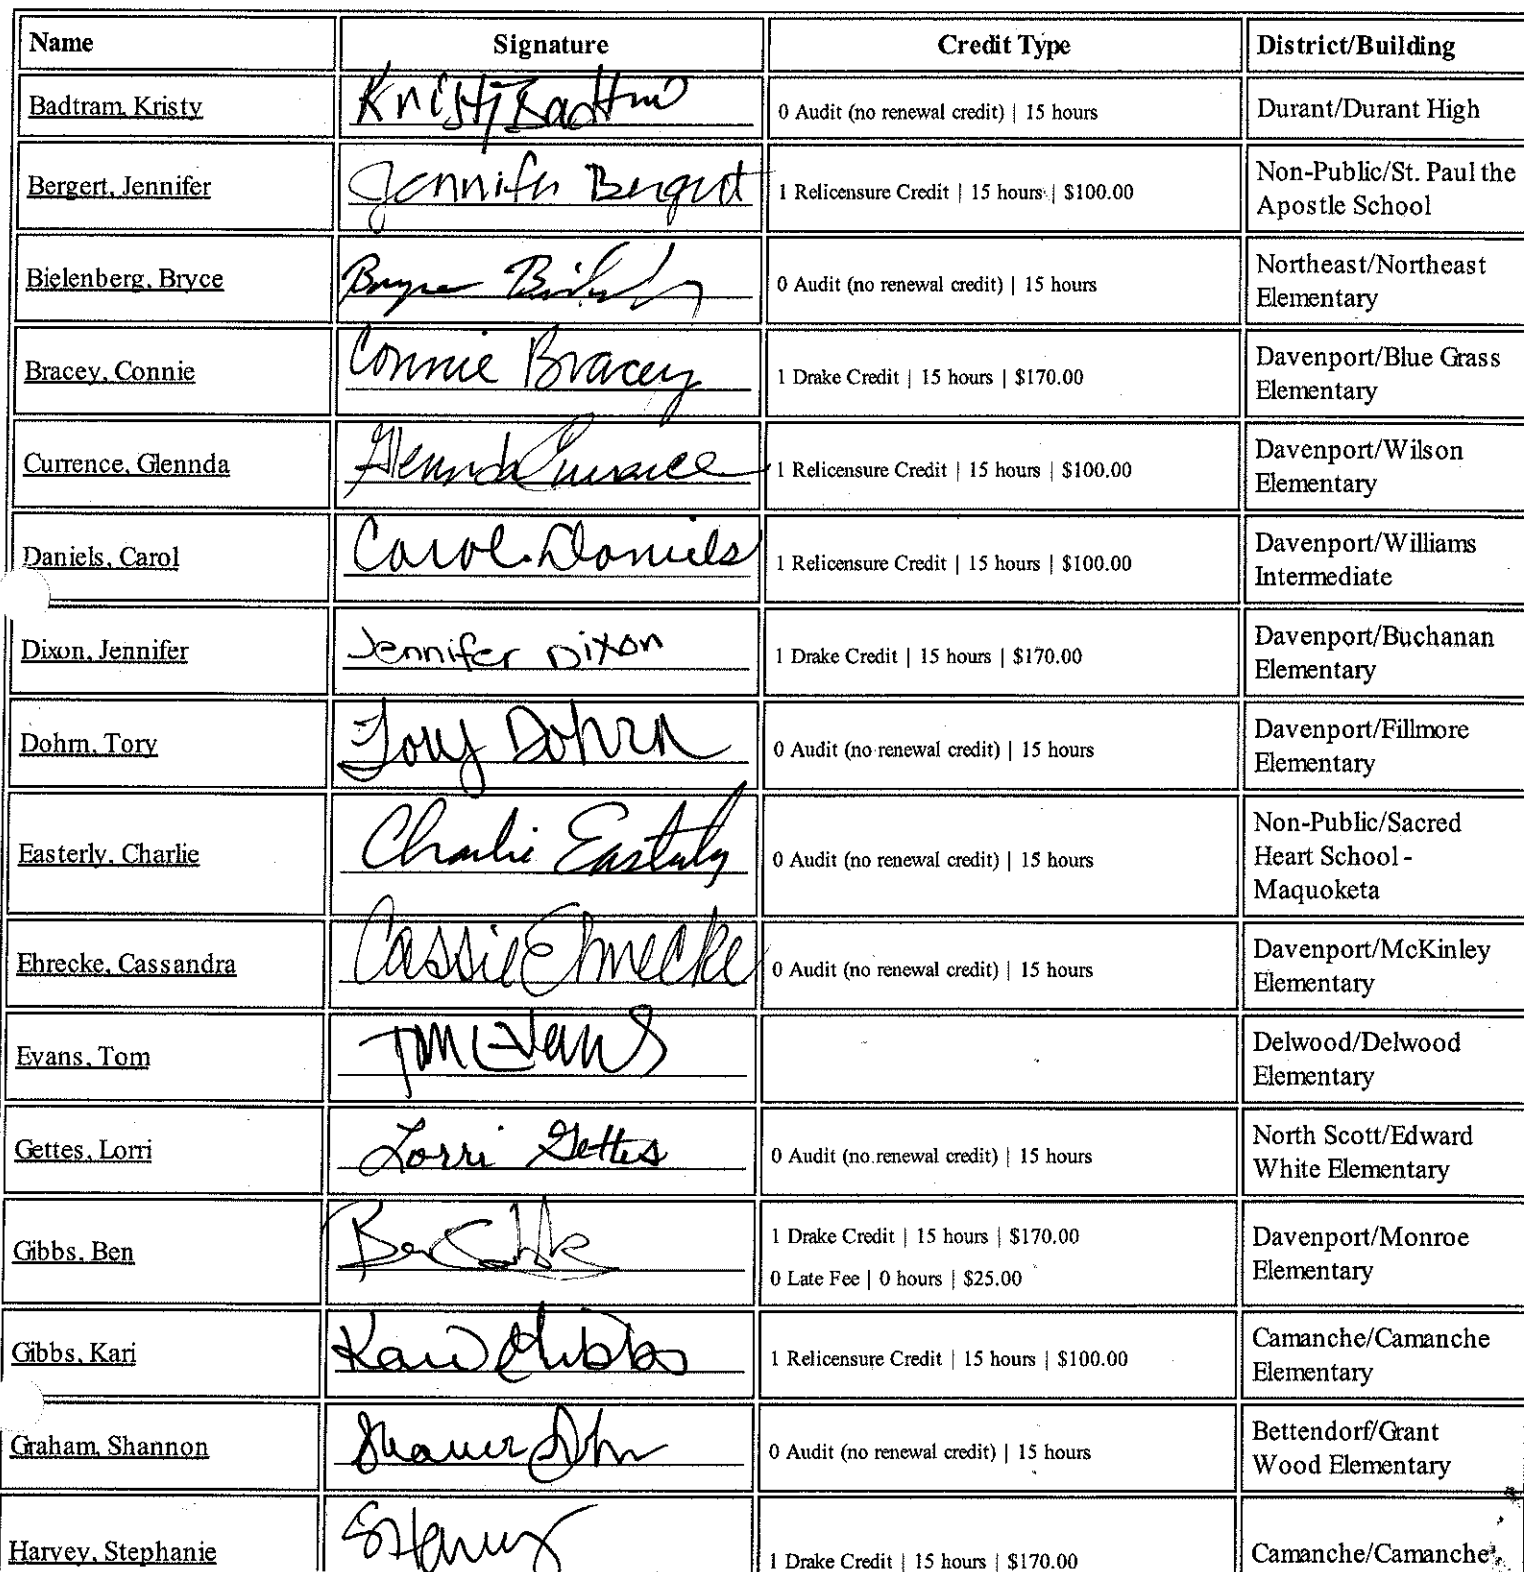 Name Signature Credit Type District/Building
Badtram, Kristy Kristy Badtram 0 Audit (no renewal credit) | 15 hours Durant/Durant High
Bergert, Jennifer Jennifer Bergert 1 Relicensure Credit | 15 hours | $100.00 Non-Public/St. Paul the
Apostle School
Bielenberg, Bryce Bryce 0 Audit (no renewal credit) | 15 hours Northeast/Northeast
Elementary
Bracey, Connie Connie Bracey 1 Drake Credit | 15 hours | $170.00 Davenport/Blue Grass
Elementary
Currence, Glennda Glennda Currence 1 Relicensure Credit | 15 hours | $100.00 Davenport/Wilson
Elementary
Daniels, Carol Carol Daniels 1 Relicensure Credit | 15 hours | $100.00 Davenport/Williams
Intermediate
Dixon, Jennifer Jennifer Dixon 1 Drake Credit | 15 hours | $170.00 Davenport/Buchanan
Elementary
Dohrn, Tory Tory Dohrn 0 Audit (no renewal credit) | 15 hours Davenport/Fillmore
Elementary
Easterly, Charlie Charlie Easterly 0 Audit (no renewal credit) | 15 hours Non-Public/Sacred
Heart School -
Maquoketa
Ehrecke, Cassandra Cassie Ehrecke 0 Audit (no renewal credit) | 15 hours Davenport/McKinley
Elementary
Evans, Tom Tom Evans Delwood/Delwood
Elementary
Gettes, Lorri Lorri Gettes 0 Audit (no renewal credit) | 15 hours North Scott/Edward
White Elementary
Gibbs, Ben Ben Gibbs 1 Drake Credit | 15 hours | $170.00 Davenport/Monroe
0 Late Fee | 0 hours | $25.00 Elementary
Gibbs, Kari Kari Gibbs 1 Relicensure Credit | 15 hours | $100.00 Camanche/Camanche
Elementary
Graham, Shannon 0 Audit (no renewal credit) | 15 hours Bettendorf/Grant
Wood Elementary
Harvey, Stephanie S Harvey 1 Drake Credit | 15 hours | $170.00 Camanche/Camanche